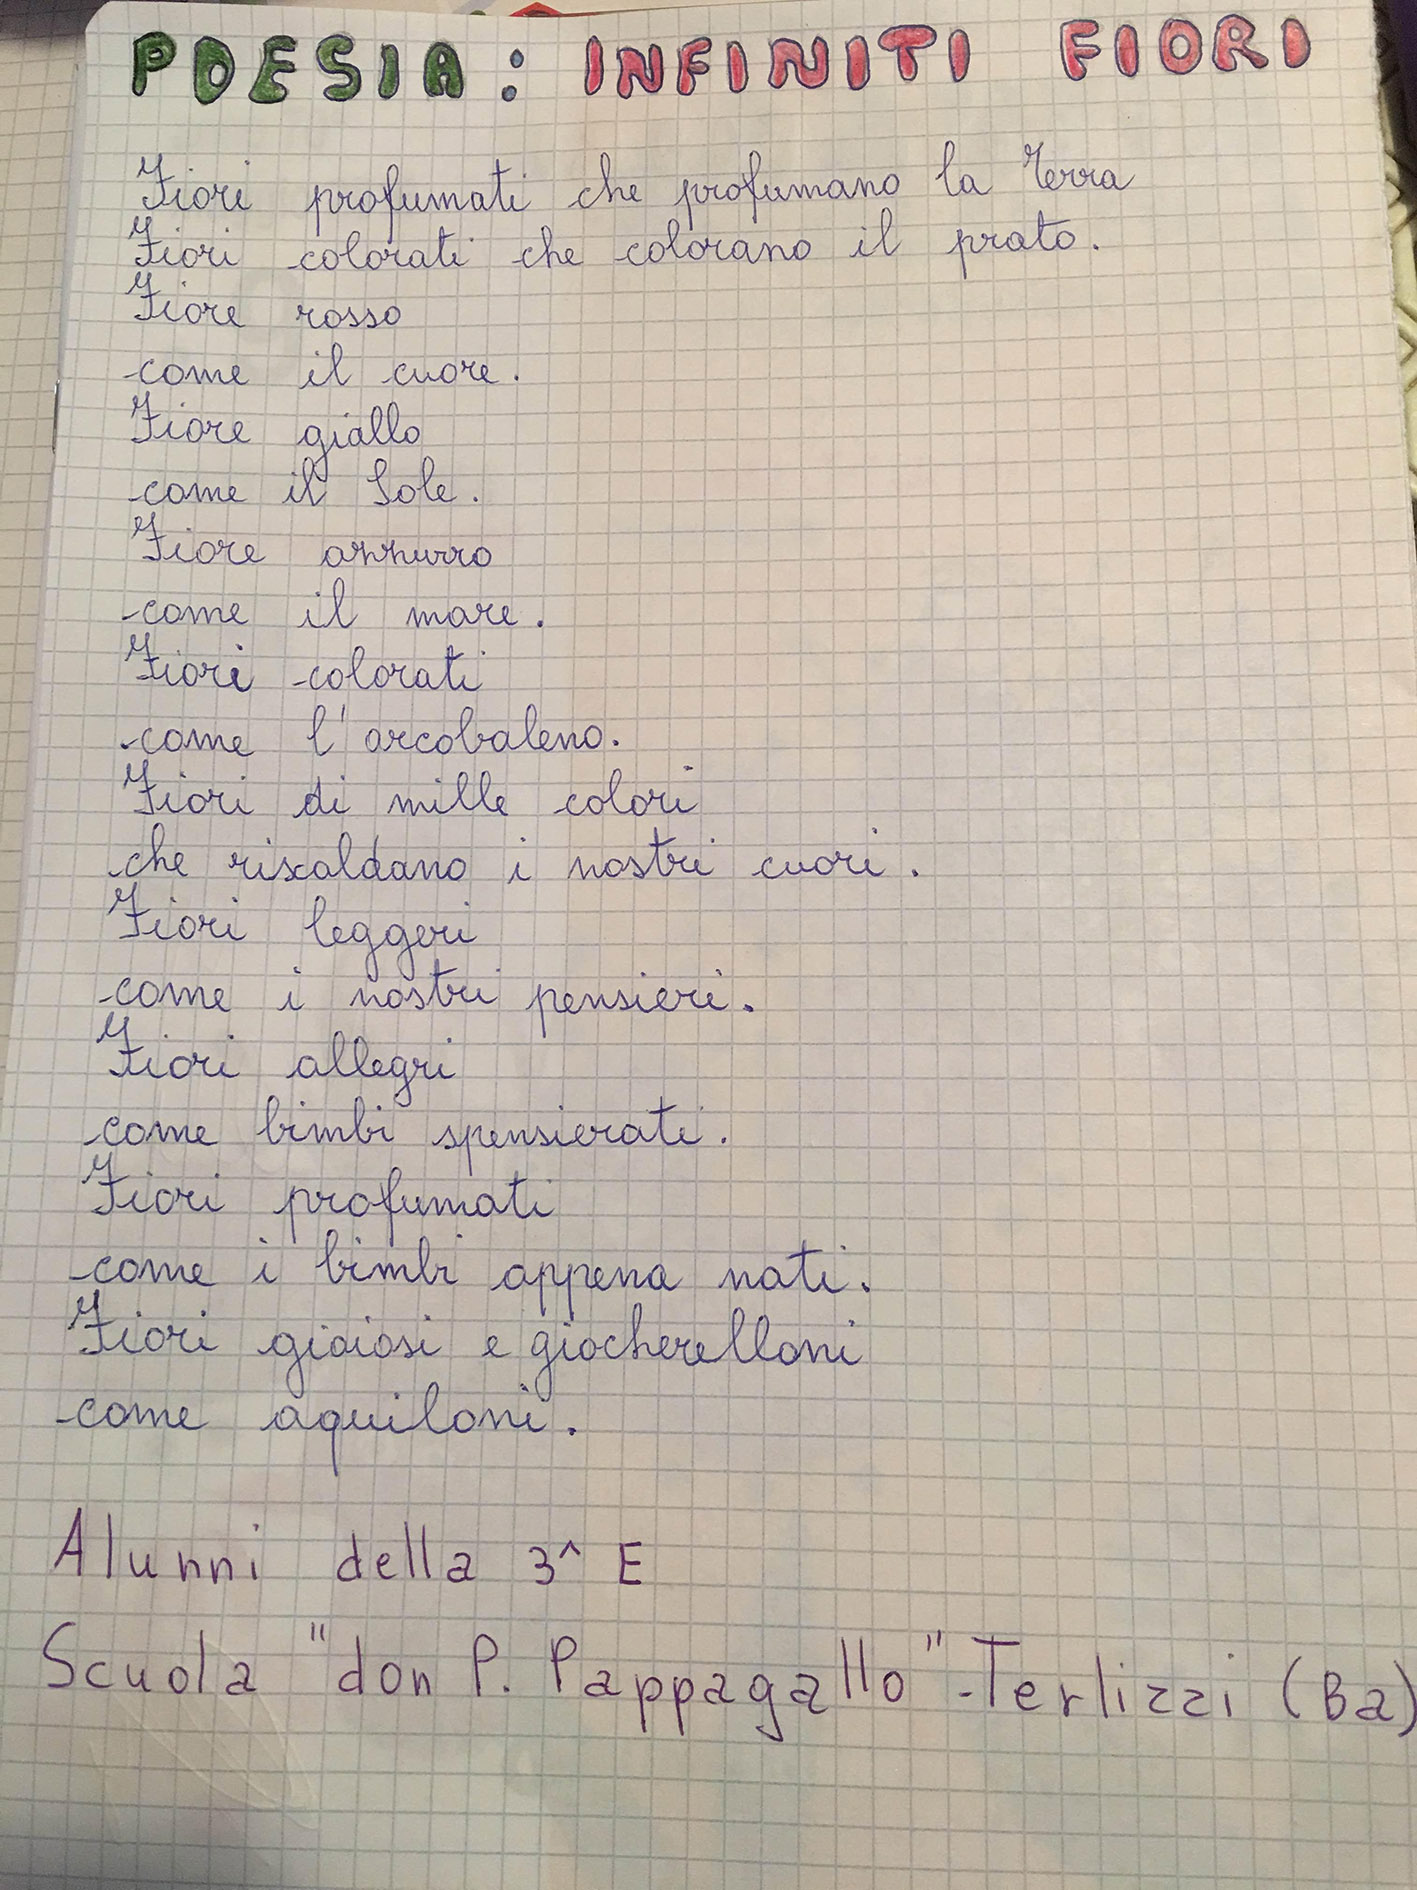 POESIA: INFINITI FIORI
Fiori profumati che profumano la Terra
Fiori colorati che colorano il prato.
Fiore rosso
come il cuore.
Fiore giallo
come il Sole.
Fiore azzurro
come il mare.
Fiori colorati
come l'arcobaleno.
Fiori di mille colori
che riscaldano i nostri cuori.
Fiori leggeri
come i nostri pensieri.
Fiori allegri
come bimbi spensierati.
Fiori profumati
come i bimbi appena nati.
Fiori gioiosi e giocherelloni
come aquiloni.
Alunni della 3^ E
Scuola "don P. Pappagallo" - Terlizzi (Ba)